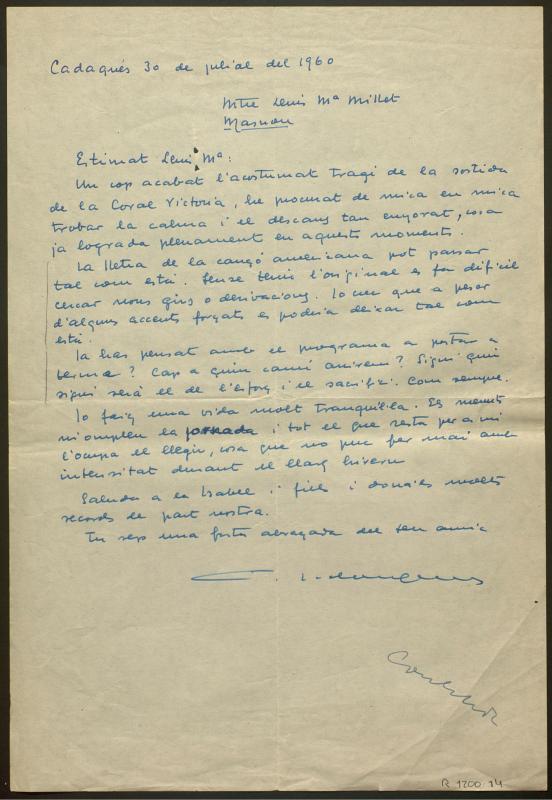 Cadaqués 30 de juliol del 1960
Mtre Lluis Mª Millet
Masnou
Estimat Lluis Mª:
Un cop acabat l'acostumat tragi de la sortida
de la Coral Victoria, he procurat de mica en mica
trobar la calma i el descans tan enyorat, cosa
ja lograda plenament en aquests moments.
La lletra de la cançó americana pot passar
tal com està. Sense tenir l'original es fa difícil
cercar nous girs o derivacions. Jo crec que a pesar
d'alguns accents forçats es podria deixar tal com
està.
Ja has pensat amb el programa a portar a
terme? Cap a quin camí anirem? Sigui quin
sigui serà el de l'esforç i el sacrifici. Com sempre.
Jo faig una vida molt tranquil·la. Els menuts
m'omplen la jornada i tot el que resta per a mi
l'ocupa el llegir, cosa que no puc fer mai amb
intensitat durant el llarg hivern
Saluda a la Isabel i fills i dona'ls molts
records de part nostra.
Tu reps una forta abraçada del teu amic
R 1200.14